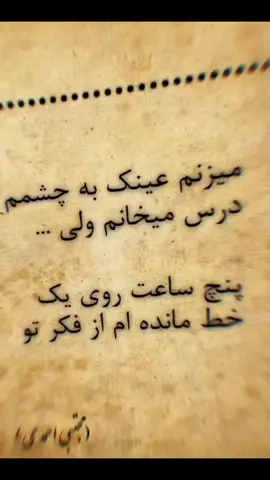 میزنم عینک به چشمم
درس میخانم ولی ...
پنچ ساعت روی یک
خط مانده ام از فکر تو
(مجتبی احمدی)